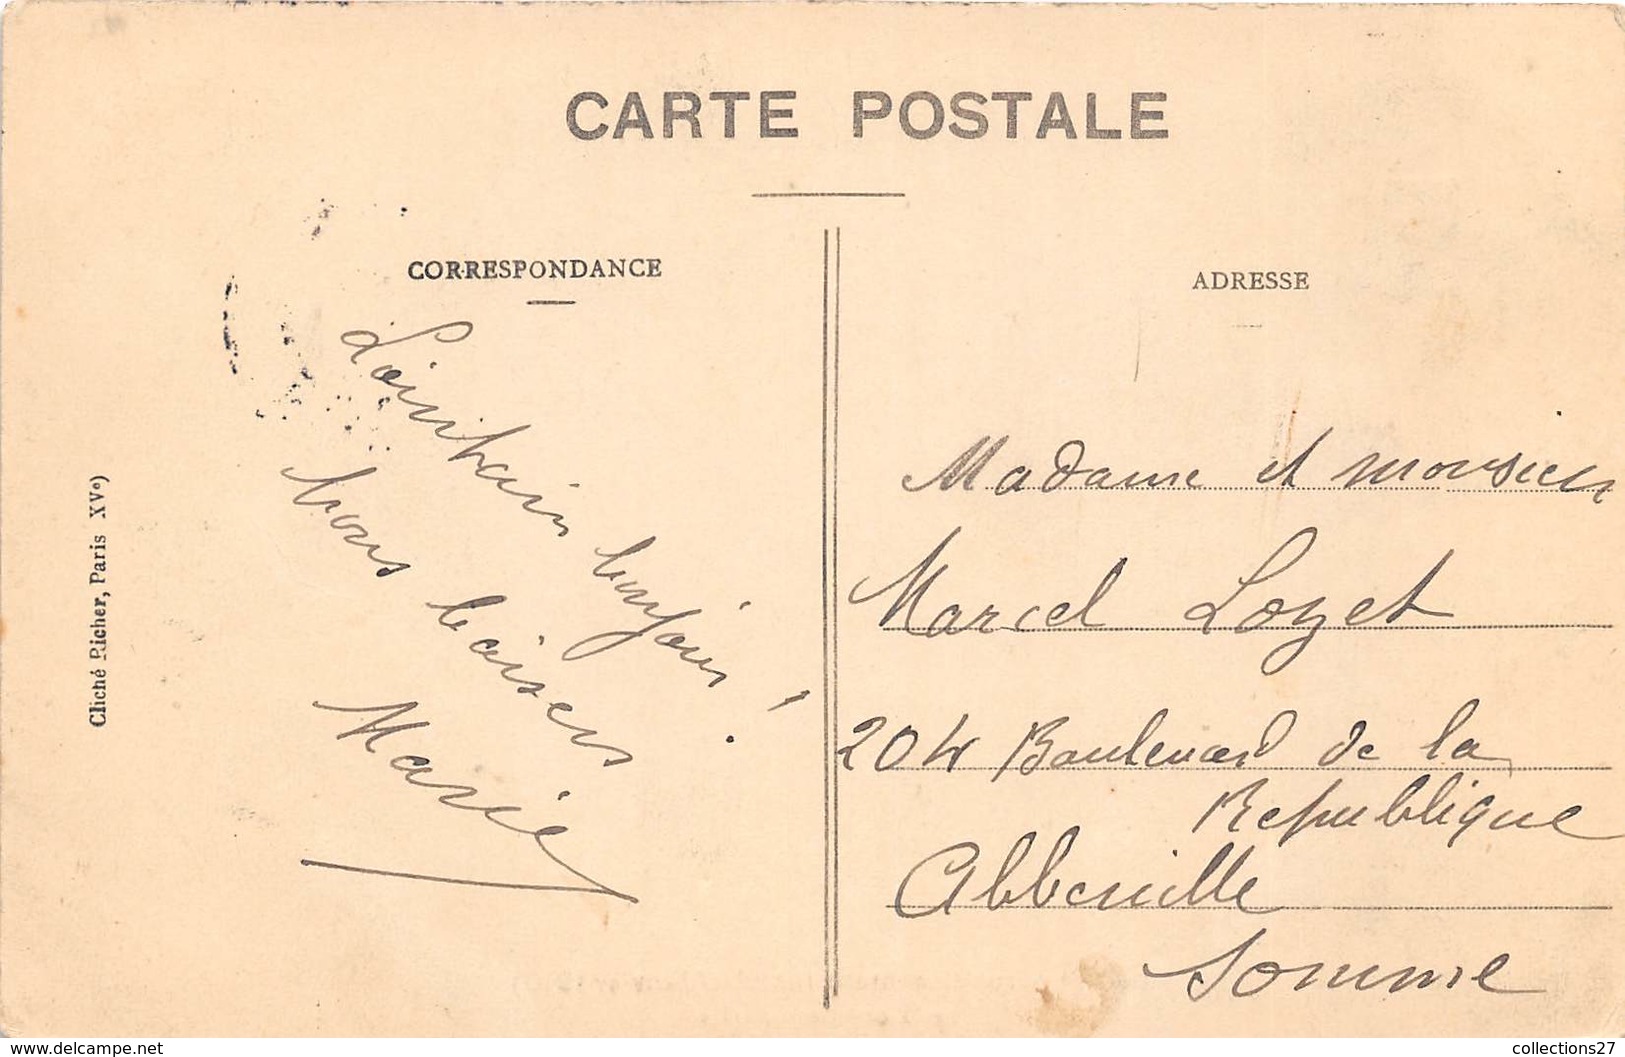 CARTE POSTALE
CORRESPONDANCE
Lointain bonjour,
bons baisers.
Marie
Cliché Richer, Paris XVe)
ADRESSE
Madame et monsieur
Marcel Lozet
204 Boulevard de la
Republique
Abbeville
Somme
www.delcampe.net
collections27